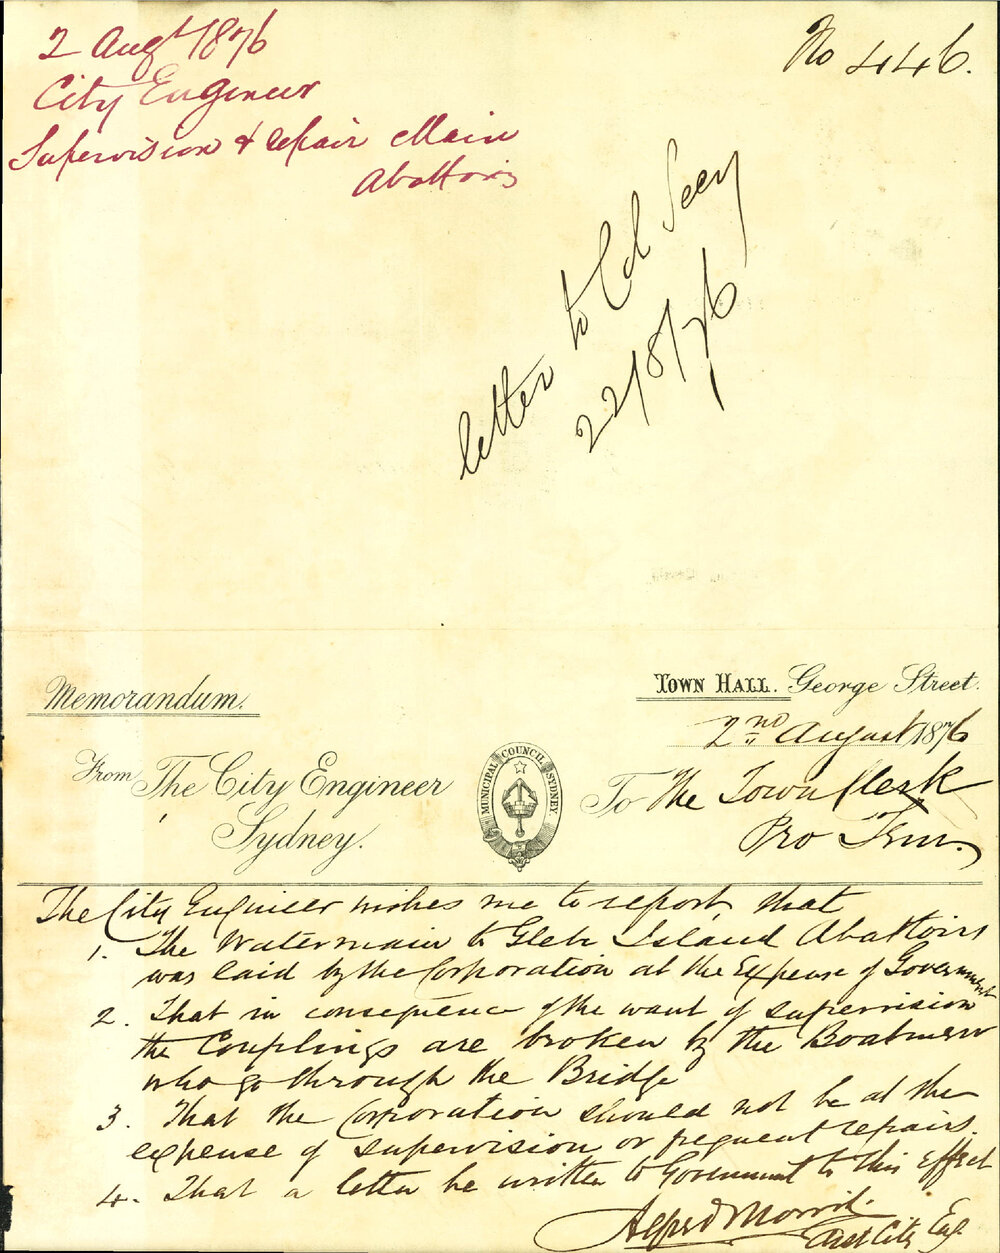 2 Augt 1876
City Engineer
Supervision & repair Main
Abattoirs
No 446.
letter to Col Secy
22/8/76
Memorandum.
Town Hall. George Street.
2nd August 1876
From The City Engineer
Sydney.
MUNICIPAL COUNCIL SYDNEY
To The Town Clerk
Pro Tem.
The City Engineer wishes me to report that
1. The Watermain to Glebe Island Abattoirs
was laid by the Corporation at the Expense of Government
2. That in consequence of the want of supervision
the Couplings are broken by the Boatmen
who go through the Bridge
3. That the Corporation should not be at the
expense of supervision or frequent repairs.
4. That a letter be written to Government to this Effect
Alfred
Asst City Eng